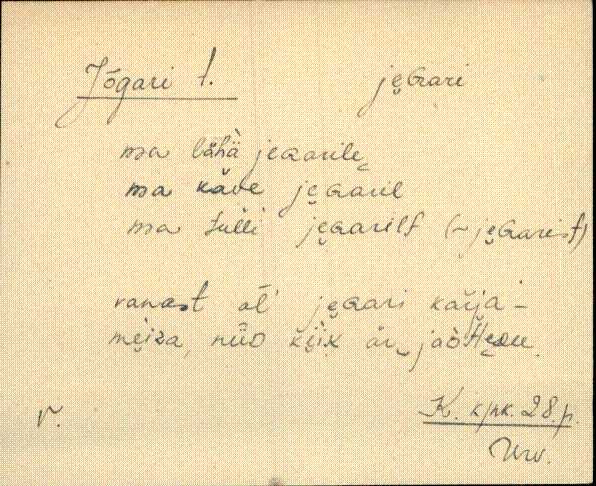 Jõgari t. je̮Gari
ma lähä̀ je̮Garile̮
ma käve je̮Garil
ma tulli je̮Garilt (~ je̮Garist)
vanast ol̆l' je̮Gari karja-
me̮iza, nüD ke̮iK är
V. K. kpk. 28. p.
Urv.